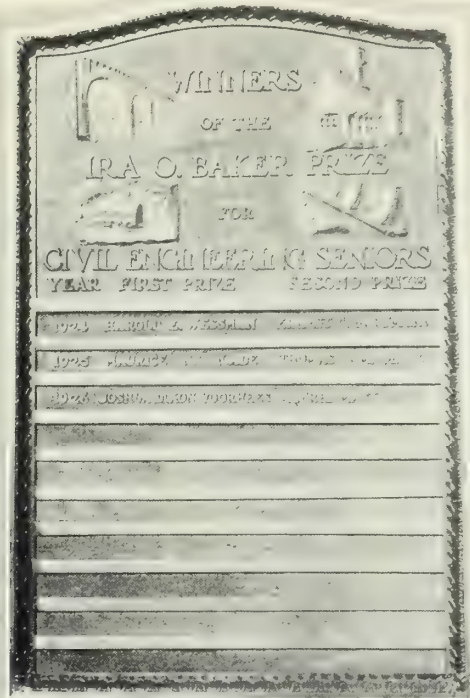 WINNERS
OF THE
IRA O. BAKER PRIZE
FOR
CIVIL ENGINEERING SENIORS
YEAR FIRST PRIZE SECOND PRIZE
1924 HAROLD E. WESSMAN
1925 MAURICE
1926 JOSHUA DIXON VOORHEES